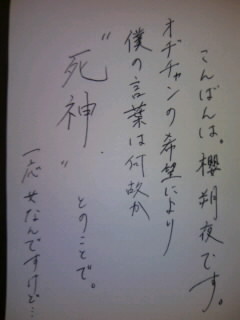 こんばんは。櫻朔夜です。
オヂチャンの希望により
僕の言葉は何故か
“死神”とのことで。
一応女なんですけど…